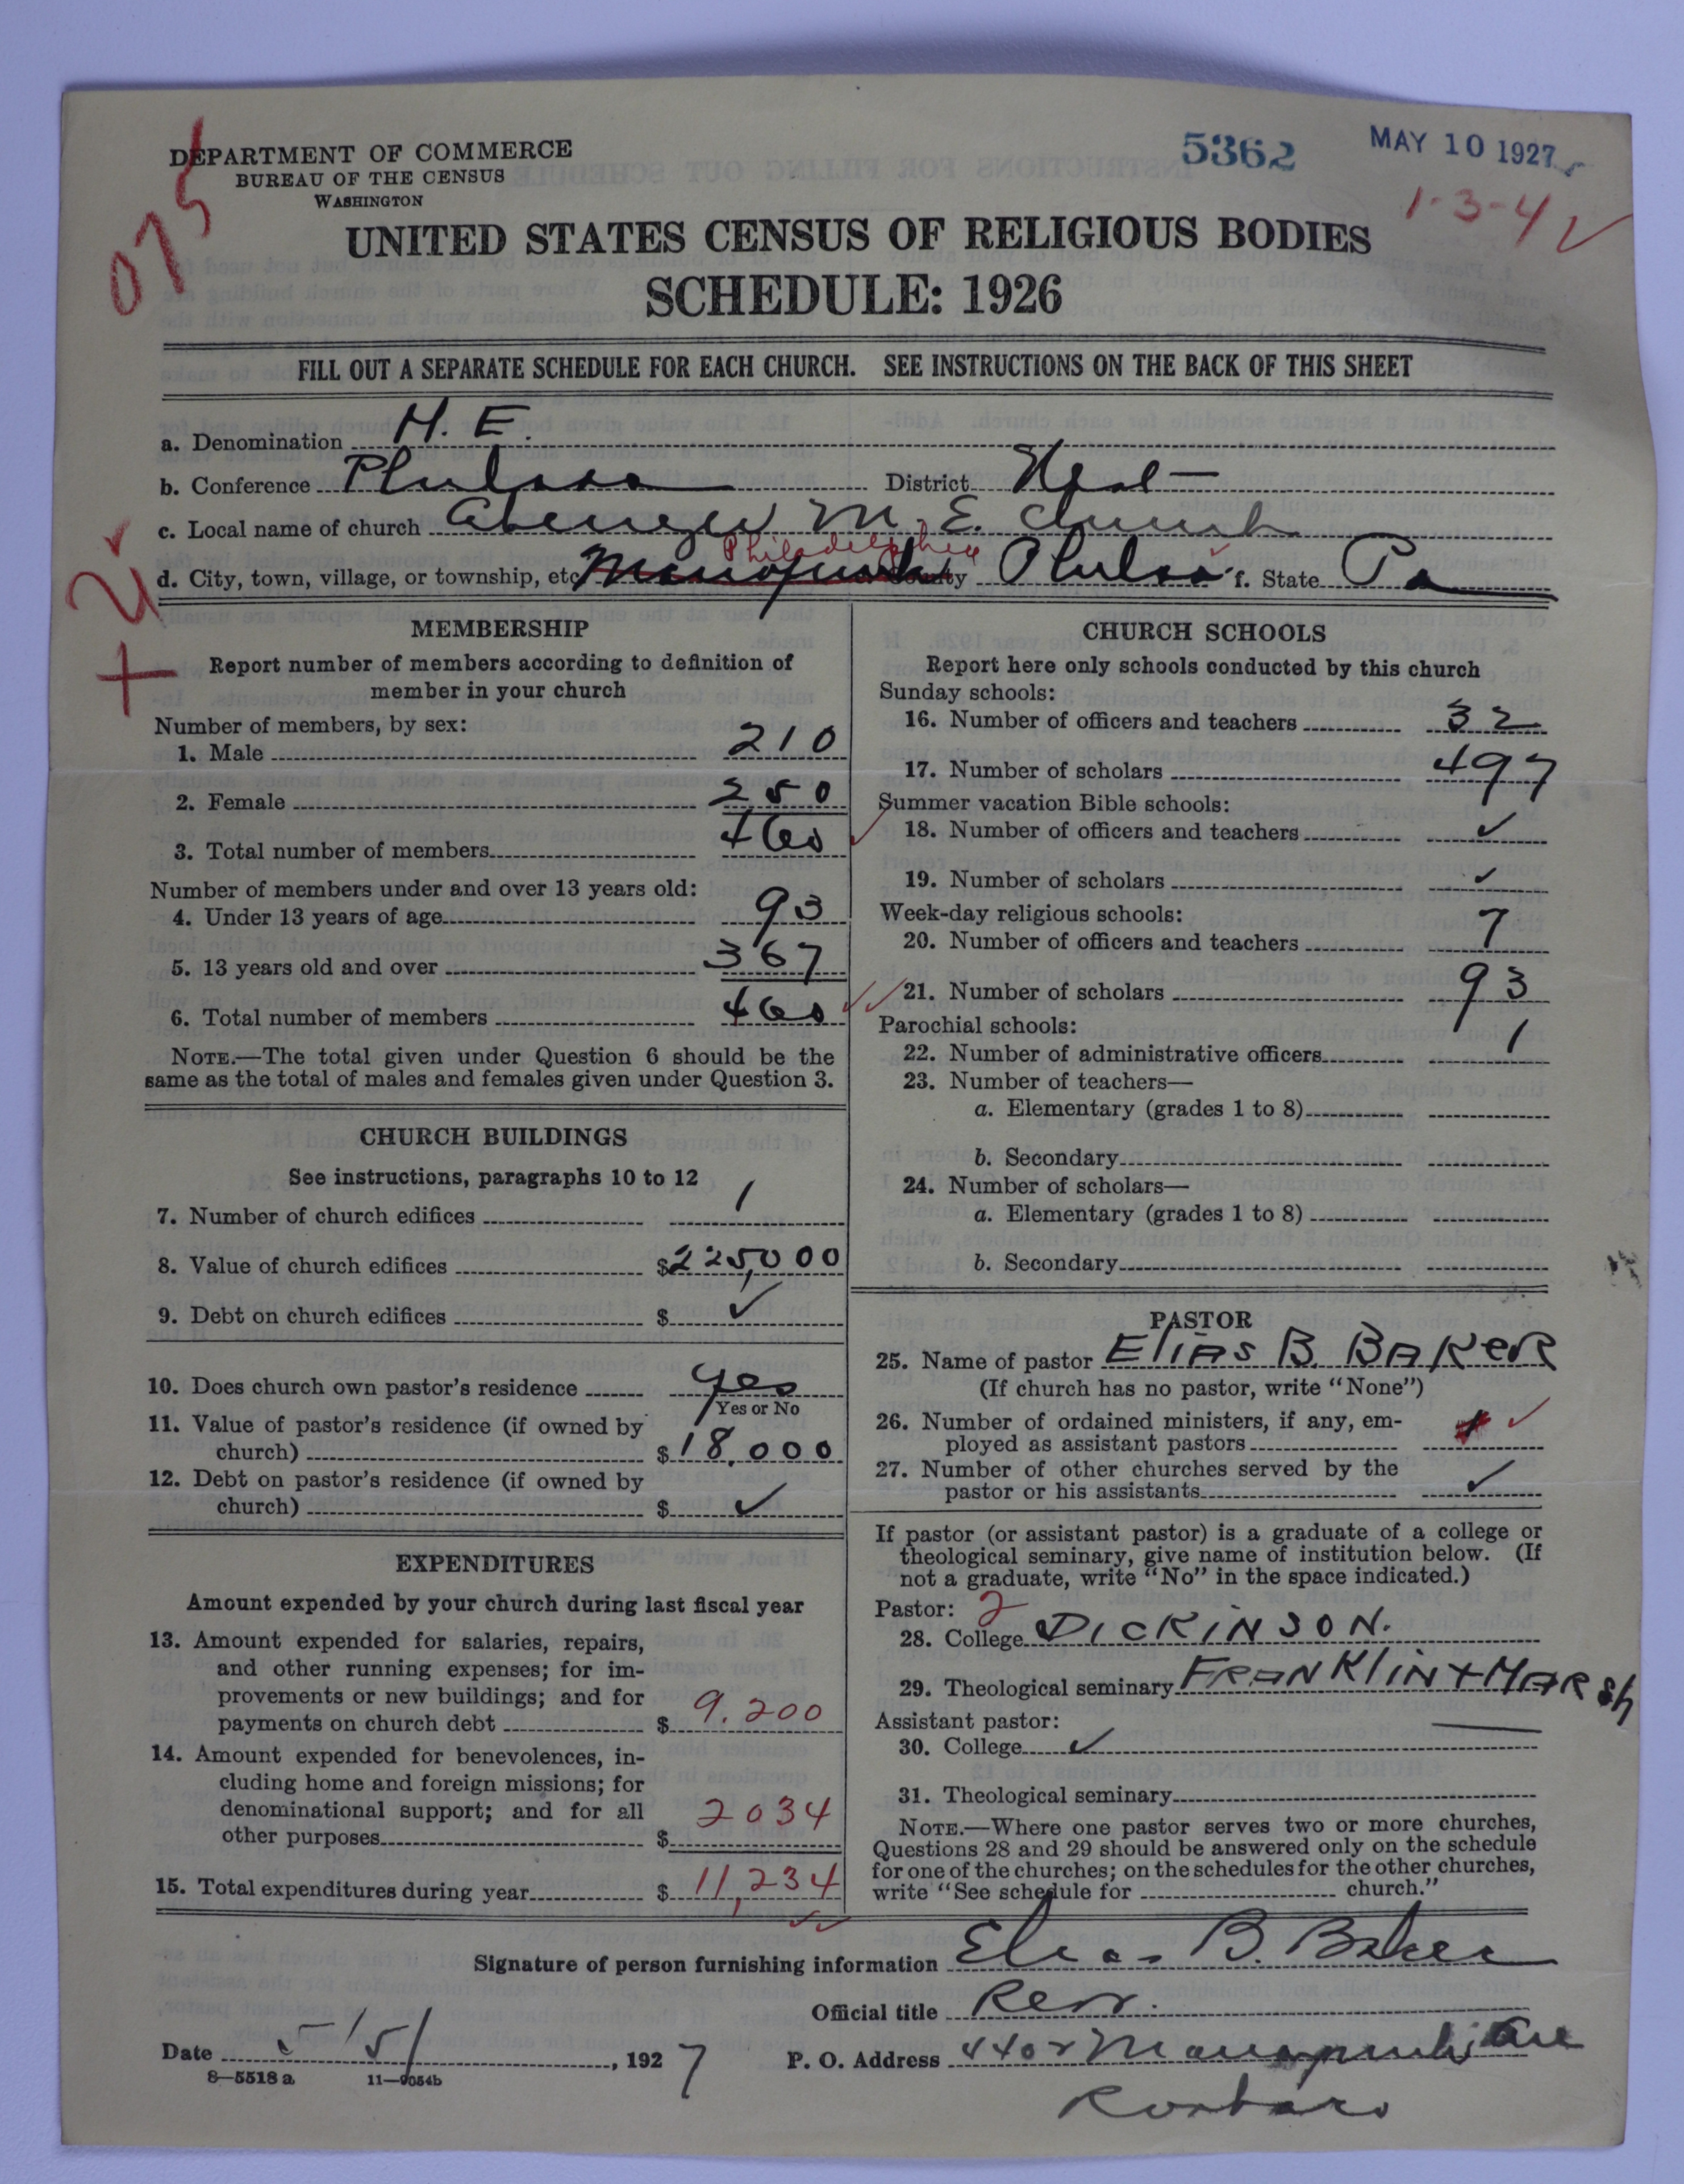 DEPARTMENT OF COMMERCE
BUREAU OF THE CENSUS
WASHINGTON
5362
MAY 10 1927
075
1-3-4 ✓
UNITED STATES CENSUS OF RELIGIOUS BODIES
SCHEDULE: 1926
FILL OUT A SEPARATE SCHEDULE FOR EACH CHURCH. SEE INSTRUCTIONS ON THE BACK OF THIS SHEET
a. Denomination M. E.
b. Conference Philada District West
c. Local name of church Ebenezer M. E. Church
Philadelphia
d. City, town, village, or township, etc. Manayunk County Philada f. State Pa
MEMBERSHIP
Report number of members according to definition of
member in your church
Number of members, by sex:
1. Male 210
2. Female 250
3. Total number of members 460 ✓
Number of members under and over 13 years old:
4. Under 13 years of age 93
5. 13 years old and over 367
6. Total number of members 460 ✓✓
NOTE.—The total given under Question 6 should be the
same as the total of males and females given under Question 3.
CHURCH BUILDINGS
See instructions, paragraphs 10 to 12
7. Number of church edifices 1
8. Value of church edifices $225,000
9. Debt on church edifices $ ✓
10. Does church own pastor's residence yes
Yes or No
11. Value of pastor's residence (if owned by
church) $18,000
12. Debt on pastor's residence (if owned by
church) $ ✓
EXPENDITURES
Amount expended by your church during last fiscal year
13. Amount expended for salaries, repairs,
and other running expenses; for im-
provements or new buildings; and for
payments on church debt $ 9.200
14. Amount expended for benevolences, in-
cluding home and foreign missions; for
denominational support; and for all
other purposes $ 2034
15. Total expenditures during year $ 11,234
✓✓
CHURCH SCHOOLS
Report here only schools conducted by this church
Sunday schools:
16. Number of officers and teachers 32
17. Number of scholars 497
Summer vacation Bible schools:
18. Number of officers and teachers ✓
19. Number of scholars ✓
Week-day religious schools:
20. Number of officers and teachers 7
21. Number of scholars 93
Parochial schools:
22. Number of administrative officers 1
23. Number of teachers—
a. Elementary (grades 1 to 8)
b. Secondary
24. Number of scholars—
a. Elementary (grades 1 to 8)
b. Secondary
PASTOR
25. Name of pastor Elias B. Baker
(If church has no pastor, write "None")
26. Number of ordained ministers, if any, em-
ployed as assistant pastors ✓
27. Number of other churches served by the
pastor or his assistants ✓
If pastor (or assistant pastor) is a graduate of a college or
theological seminary, give name of institution below. (If
not a graduate, write "No" in the space indicated.)
Pastor: 2
28. College DICKINSON.
29. Theological seminary FRANKlIN + MARSh
Assistant pastor:
30. College ✓
31. Theological seminary
NOTE.—Where one pastor serves two or more churches,
Questions 28 and 29 should be answered only on the schedule
for one of the churches; on the schedules for the other churches,
write "See schedule for church."
Signature of person furnishing information Elias B. Baker
Official title Rev.
Date 5/5/, 1927
P. O. Address Manayunk Ave
Roxboro
8—5518 a 11—9054b